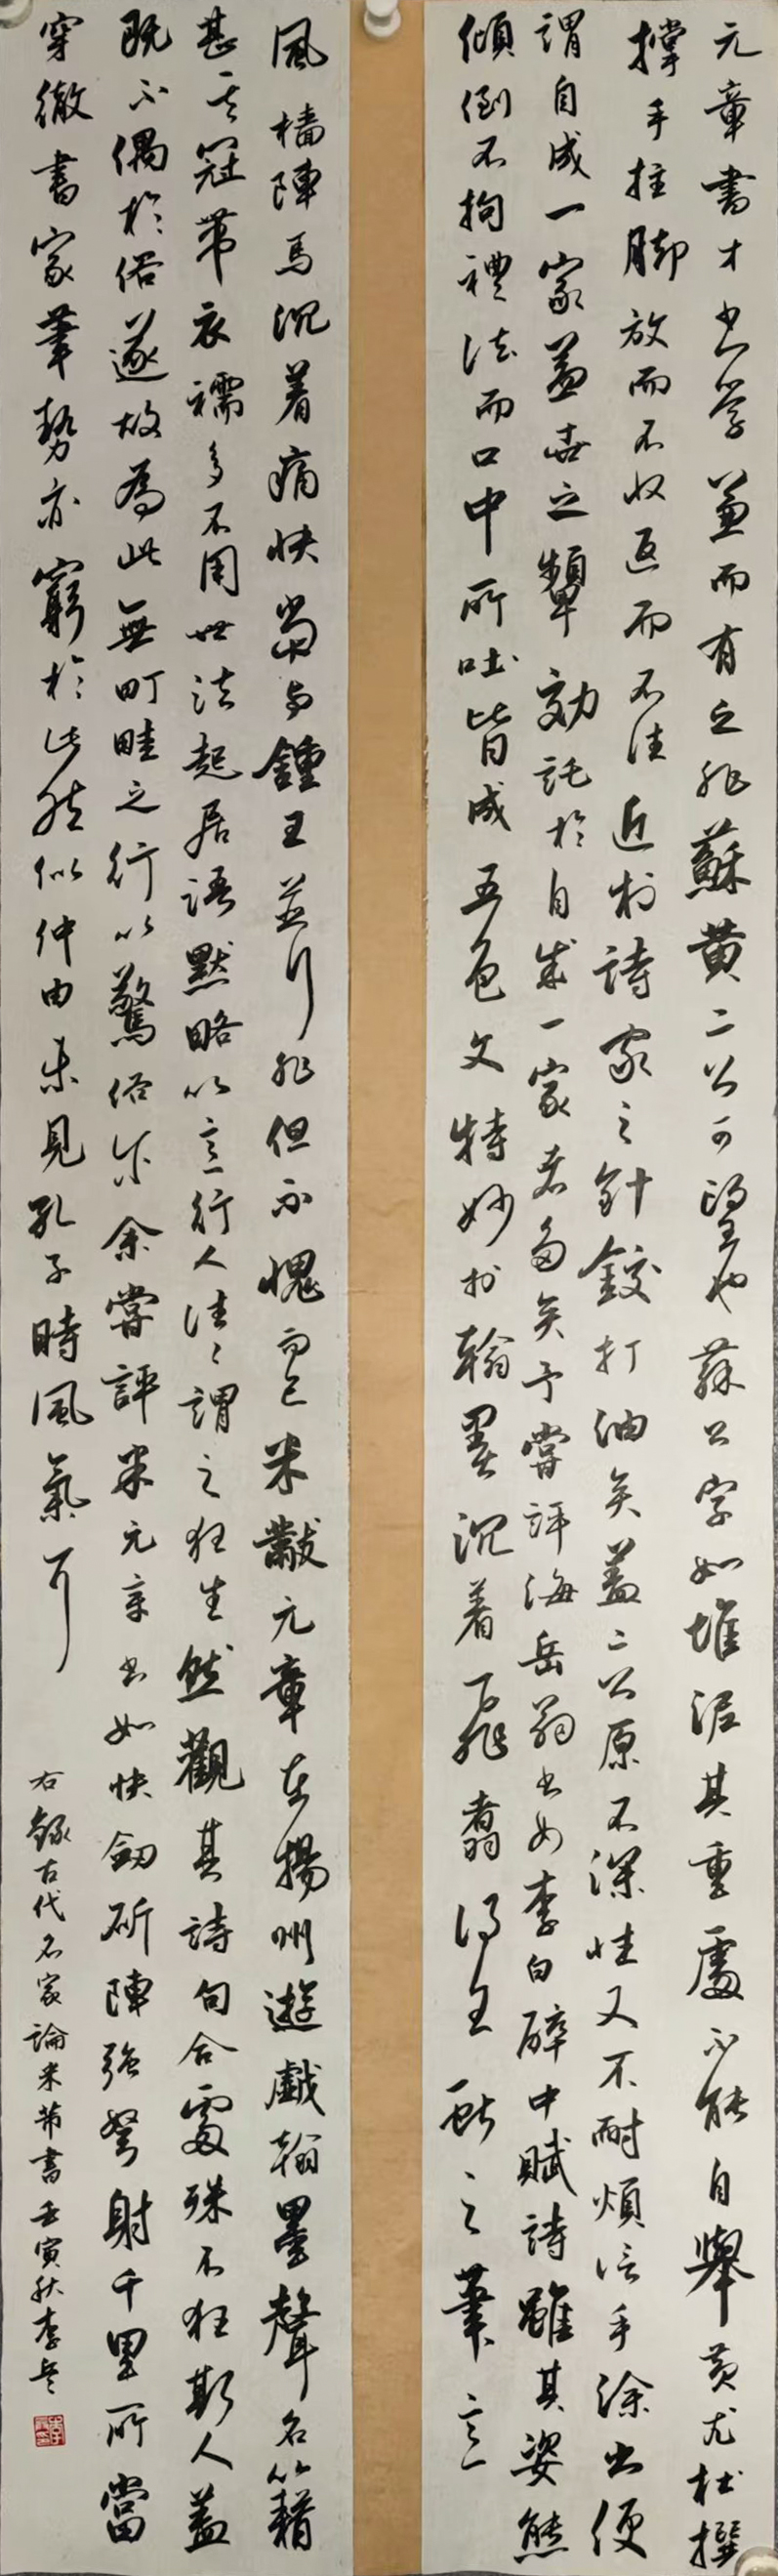 元章書才書學兼而有之非蘇黃二公可望也蘇公字如堆泥其重處不能自舉黃尤杜撰
撑手拄脚放而不收返而不佳近村詩家之針鉸打油矣蓋二公原不深於又不耐煩信手涂出便
謂自成一家蓋世之顰効託於自成一家者多矣予嘗評海岳翁書如李白醉中賦詩雖其姿態
傾倒不拘禮法而口中所吐皆成五色文特妙於翰墨沉着飛翥得王獻之筆意
風檣陣馬沉着痛快當與鍾王並行非但不愧而已米黻元章在揚州遊戲翰墨聲名籍
甚其冠帶衣襦多不用世法起居語默略以意行人往往謂之狂生然觀其詩句合處殊不狂斯人蓋
既不偶於俗遂故為此無町畦之行以驚俗尔余嘗評米元章書如快劒斫陣強弩射千里所當
穿徹書家筆勢亦窮於此然似仲由未見孔子時風氣耳
右錄古代名家論米芾書壬寅秋李兵